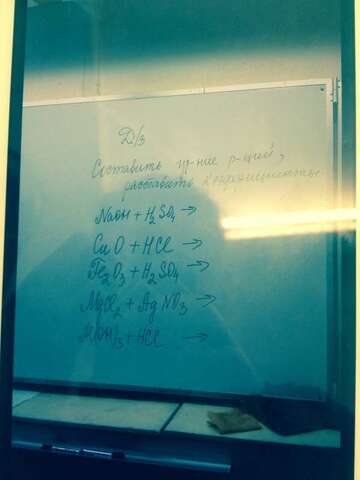 Д/з
Составить ур-ние р-ций,
расставить коэффициенты
NaOH + H₂SO₄ →
CuO + HCl →
Fe₂O₃ + H₂SO₄ →
MgCl₂ + AgNO₃ →
(OH)₃ + HCl →